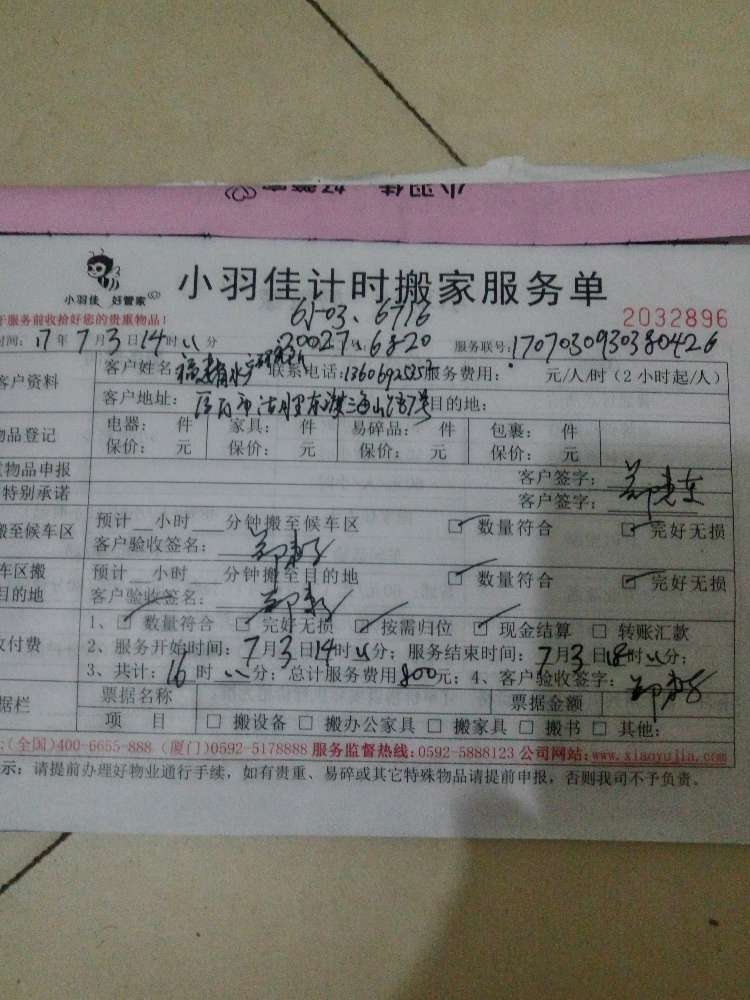 小羽佳 好管家
小羽佳 好管家
小羽佳计时搬家服务单
服务前收拾好您的贵重物品!
61-03、6716
2032896
时间: 17年7月3日14时 分
30027 6820
服务联号: 1707030930380426
客户资料
客户姓名: 福建省水产研究所 联系电话: 服务费用: 元/人/时(2小时起/人)
客户地址: 厦门市 东渡海山路7号 目的地:
物品登记
电器: 件 家具: 件 易碎品: 件 包裹: 件
保价: 元 保价: 元 保价: 元 保价: 元
物品申报
客户签字:
特别承诺
客户签字:
搬至候车区
预计__小时___分钟搬至候车区 ☑ 数量符合 ☑ 完好无损
客户验收签名:
车区搬
目的地
预计__小时___分钟搬至目的地 ☑ 数量符合 ☑ 完好无损
客户验收签名:
付费
1、☑ 数量符合 ☑ 完好无损 ☑ 按需归位 ☑ 现金结算 ☐ 转账汇款
2、服务开始时间: 7月3日14时 分; 服务结束时间: 7月3日18时 分;
3、共计: 16时 分; 总计服务费用800元; 4、客户验收签字:
据栏
票据名称 票据金额
项 目 ☐ 搬设备 ☐ 搬办公家具 ☐ 搬家具 ☐ 搬书 ☐ 其他:
(全国)400-6655-888 (厦门)0592-5178888 服务监督热线:0592-5888123 公司网站:www.xiaoyujia.com
示: 请提前办理好物业通行手续, 如有贵重、易碎或其它特殊物品请提前申报, 否则我司不予负责。